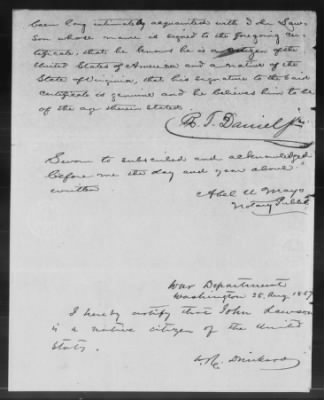 been long intimately acquainted with John Law-
son whose name is signed to the foregoing cer-
tificate, that he knows he is a citizen of the
United States of America and a native of the
State of Virginia, that his signature to the said
certificate is genuine and he believes him to be
of the age therein stated.
T. Daniel Jr.
Sworn to subscribed and acknowledged
before me the day and year above
written
Abel U Mayo
Notary Public
War Department
Washington 28, Aug. 1857
I hereby certify that John Lawson
is a native citizen of the United
States.